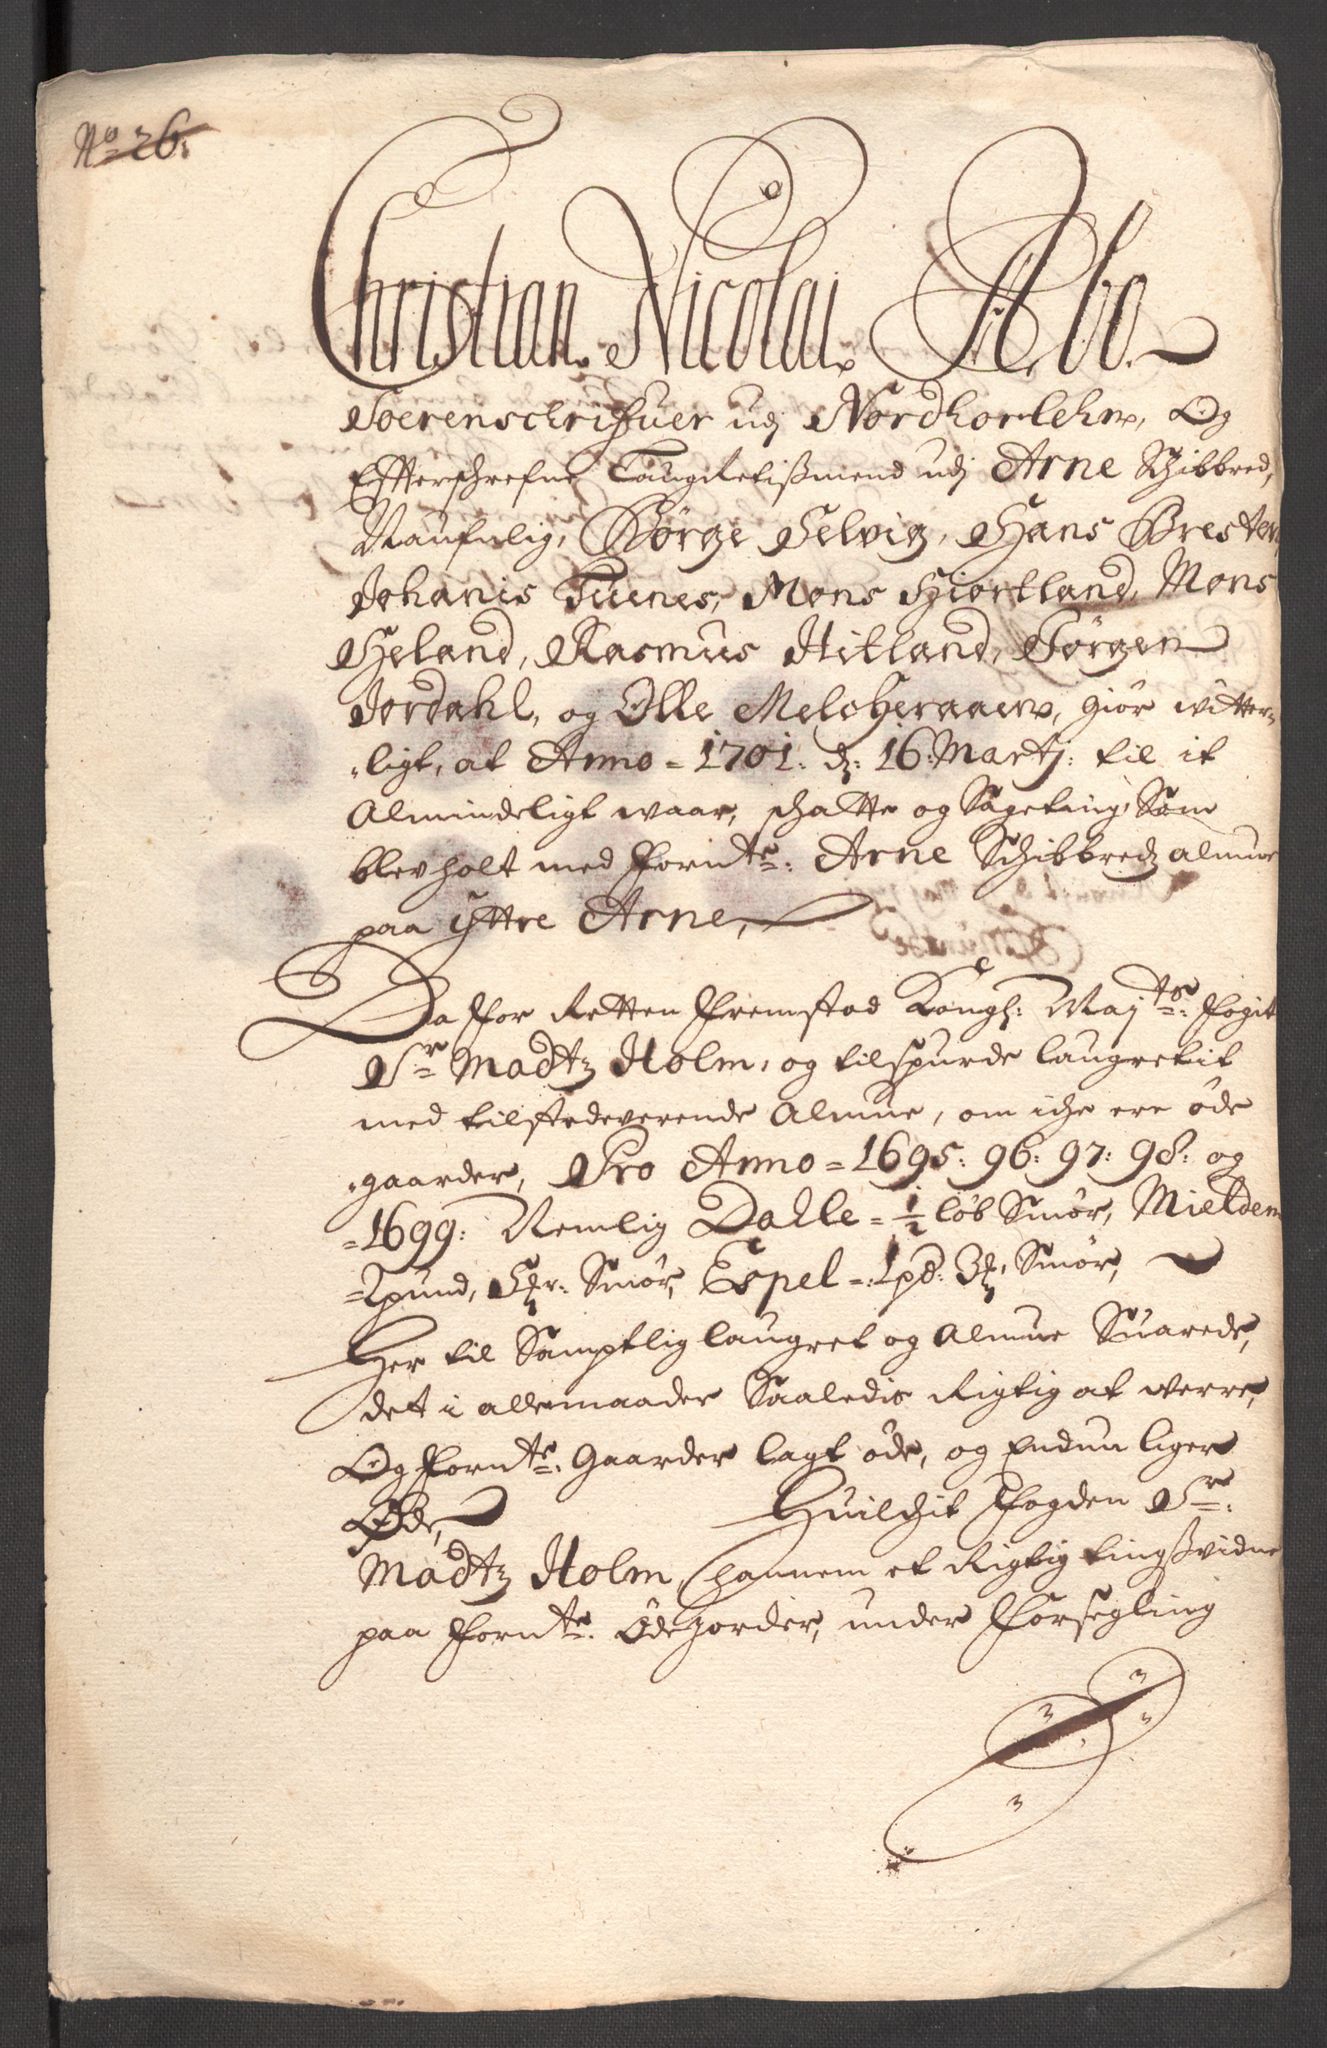 No 26.
Christian Nicolai Abo
Soerenschrifuer udj Nordhorlehn, Og
Effterschrefne Laugretismend udj Arne Schibbred,
Naufnlig, Børge Selvig, Hans Bresten,
Johanis Tuenes, Mons Hiortland, Mons
Heland, Rasmus Hitland, Jørgen
Jordahl, og Olle Melcheraaen, giør witter-
ligt, at Anno 1701. d: 16: Martj: til it
Almindeligt waar, schatte og Sageting, Som
blev holt med fornte: Arne Schibbredz almue
paa yttre Arne,
Da for Retten fremstod Kongl: Majts: fogit
Sr Madtz Holm, og tilspurde laugretit
med tilstedeverende Almue, om iche ere øde
gaarder, Pro Anno 1695: 96: 97: 98: og
1699: Nemlig Dahle 1/2 løb Smør, Mieldem
pund, Smør, Espel 1 pd: Smør,
Her til Samptlig laugret og Almue Suarede,
det i alle maader Saaledis Rigtig at werre,
Og fornte: Gaarder lagt øde, og Endnu liger
Øde, Huilchit fogden Sr:
Madtz Holm, hannem et Rigtig tingsvidne
paa fornte: Ødegorder, under forsegling